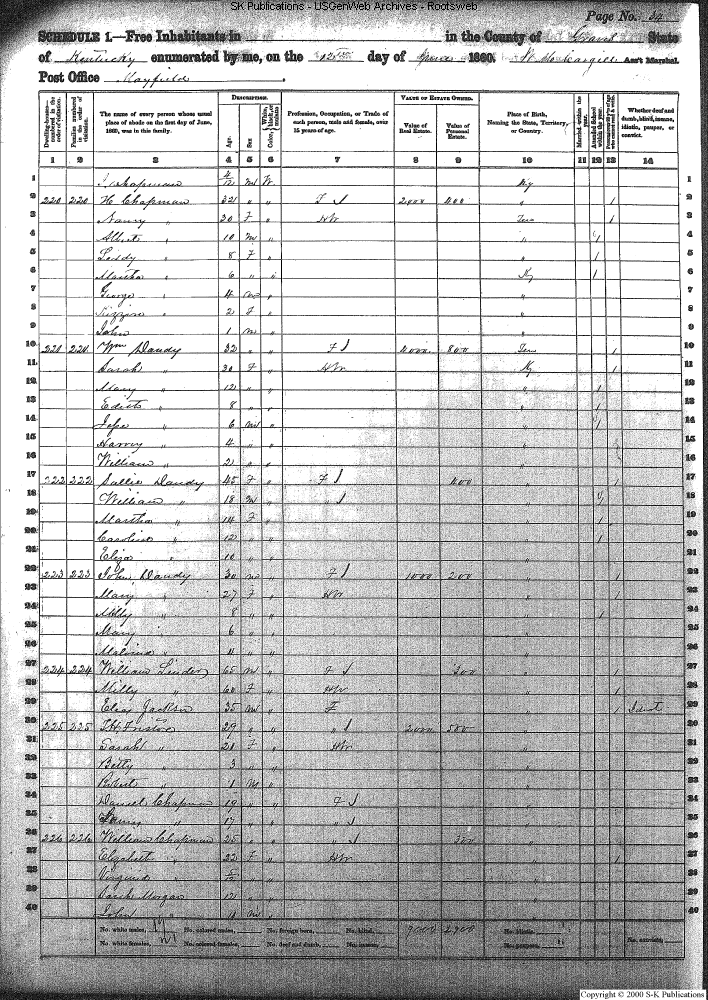 SK Publications - USGenWeb Archives - Rootsweb
Page No.
SCHEDULE 1.—Free Inhabitants in in the County of Graves State
of Kentucky enumerated by me, on the 12th day of June 1860. Ass't Marshal.
Post Office Mayfield.
Dwelling-houses—numbered in the order of visitation.
Families numbered in the order of visitation.
The name of every person whose usual place of abode on the first day of June, 1860, was in this family.
DESCRIPTION.
Age.
Sex.
Color, White, black, or mulatto.
Profession, Occupation, or Trade of each person, male and female, over 15 years of age.
VALUE OF ESTATE OWNED.
Value of Real Estate.
Value of Personal Estate.
Place of Birth, Naming the State, Territory, or Country.
Married within the year.
Attended School within the year.
Whether deaf and dumb, blind, insane, idiotic, pauper, or convict.
1 2 3 4 5 6 7 8 9 10 11 12 13 14
1 Chapman m W Ky 1
2 220 220 H Chapman 32 " " F 2000 400 " / 2
3 Nancy " 30 F " HW Ten / 3
4 Albert " 10 m " " / 4
5 8 F " " / 5
6 Martha " 6 " " Ky / 6
7 George " 4 m " " 7
8 2 F " " 8
9 John " 1 m " " 9
10 221 221 Wm Dandy 32 " " F 4000 800 Ten / 10
11 Sarah " 30 F " HW Ky / 11
12 Mary " 12 " " " / 12
13 Edith " 8 " " " / 13
14 6 m " " / 14
15 Harvey " 4 " " " 15
16 William " 2 " " " 16
17 222 222 Sallie Dandy 45 F " F 400 " / 17
18 William " 18 m " " " / 18
19 Martha " 14 F " " / 19
20 Caroline " 12 " " " / 20
21 Eliza " 10 " " " 21
22 223 223 John Dandy 30 m " F 1000 200 " / 22
23 Mary " 27 F " HW " / 23
24 Milly " 8 " " " / 24
25 Mary " 6 " " " 25
26 Malinda " 4 " " " 26
27 224 224 William Linder 65 m " F 300 " / 27
28 Milly " 60 F " HW " / 28
29 Jackson 35 m " F " / Idiot 29
30 225 225 29 " " " 2000 500 " 30
31 Sarah " 21 F " HW " 31
32 Betty " 3 " " "
33 Robert " 1 m " "
34 Daniel Chapman 19 " " F "
35 17 " " " "
36 226 226 William Chapman 25 " " " 300 "
37 Elizabeth " 22 F " HW " /
38 Virginia " " " "
39 Sarah Morgan 12 " " "
40 John " 11 m " " 40
No. white males, 19 No. colored males, No. foreign born, No. blind, 9000 2900 No. idiotic,
No. white females, 21 No. colored females, No. deaf and dumb, No. insane, No. paupers, No. convicts,
Copyright © 2000 S-K Publications